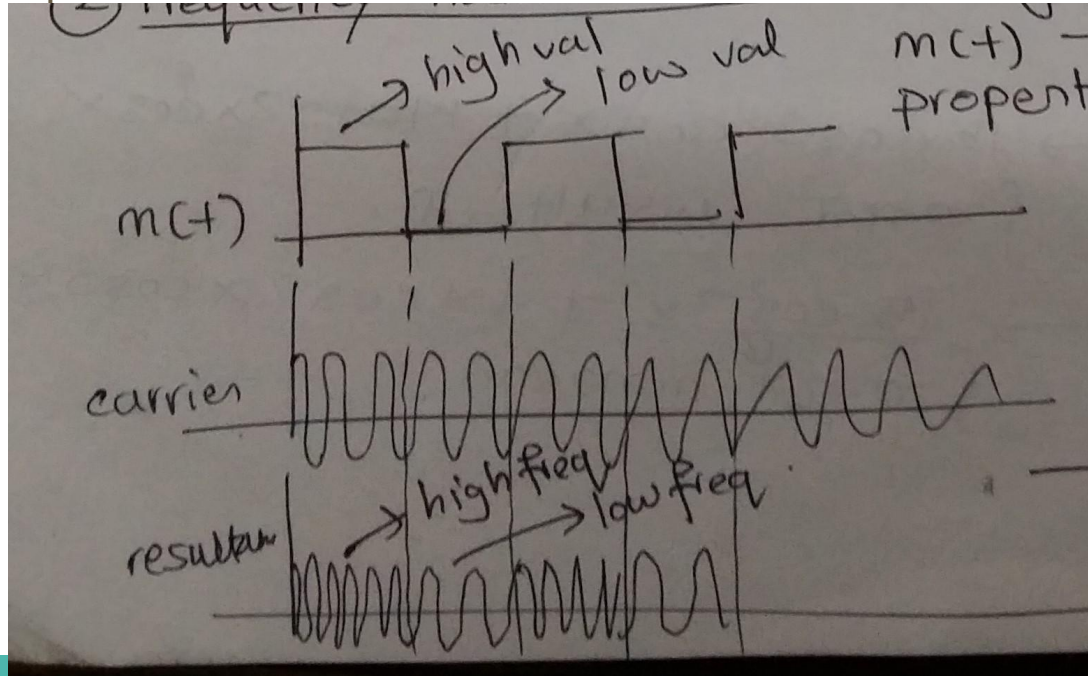 ② Frequency
high val
low val
m(t) –
propent
m(t)
carrier
high freq
low freq
resultan